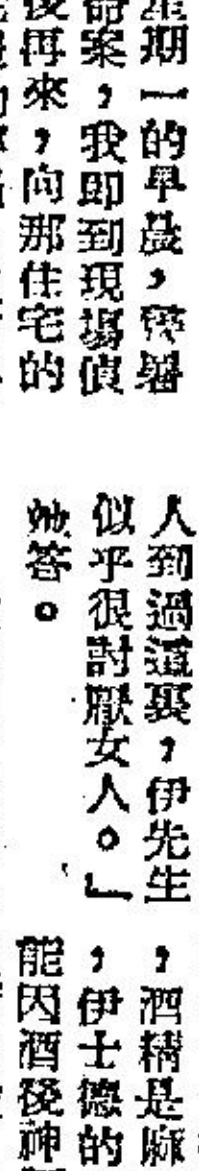 星期一的早晨，警署
命案，我即到現場偵
後再來，向那住宅的
人到過這裏，伊先生
似乎很討厭女人。」
她答。
，酒精是麻
，伊士德的
能因酒後神